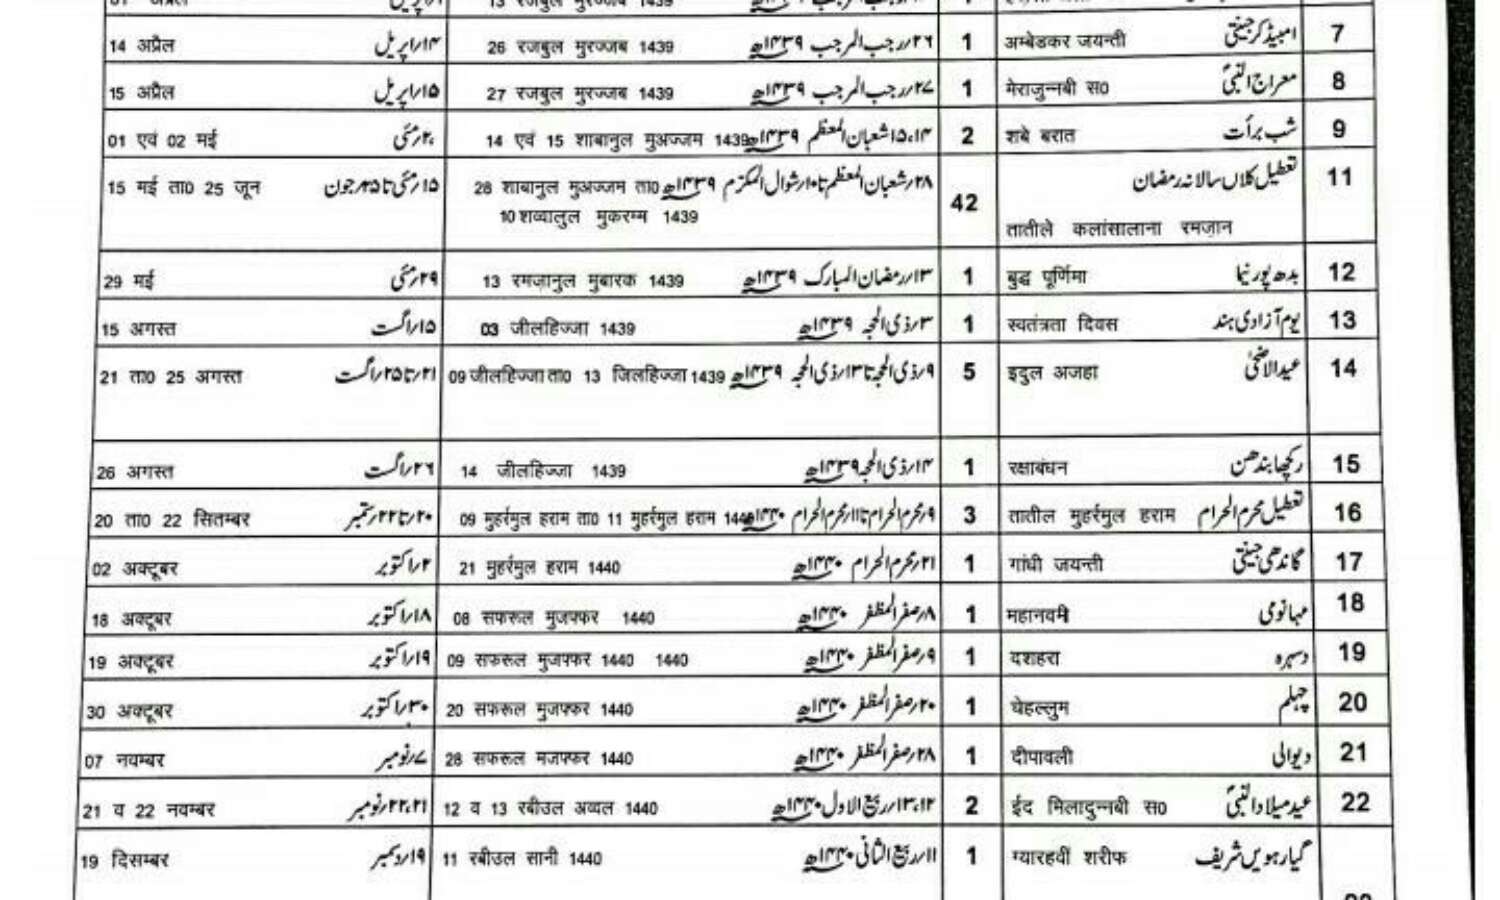 14 अप्रैल ۱۴/اپریل 26 रजबुल मुरज्जब 1439 ۲۶/رجب المرجب ۱۴۳۹ھ 1 अम्बेडकर जयन्ती امبیڈکر جینتی 7
15 अप्रैल ۱۵/اپریل 27 रजबुल मुरज्जब 1439 ۲۷/رجب المرجب ۱۴۳۹ھ 1 मेराजुन्नबी स0 معراج النبیؐ 8
01 एवं 02 मई ۲،۱/مئی 14 एवं 15 शाबानुल मुअज्जम 1439 ۱۵،۱۴/شعبان المعظم ۱۴۳۹ھ 2 शबे बरात شب برأت 9
15 मई ता0 25 जून ۱۵/مئی تا ۲۵/جون 28 शाबानुल मुअज्जम ता0 ۲۸/شعبان المعظم تا ۱۰/شوال المکرم ۱۴۳۹ھ 42 تعطیل کلاں سالانہ رمضان 11
10 शव्वालुल मुकरम्म 1439 तातीले कलांसालाना रमज़ान
29 मई ۲۹/مئی 13 रमज़ानुल मुबारक 1439 ۱۳/رمضان المبارک ۱۴۳۹ھ 1 बुद्ध पूर्णिमा بدھ پورنیما 12
15 अगस्त ۱۵/اگست 03 जीलहिज्जा 1439 ۳/ذی الحجہ ۱۴۳۹ھ 1 स्वतंत्रता दिवस یوم آزادی ہند 13
21 ता0 25 अगस्त ۲۱/تا ۲۵/اگست 09 जीलहिज्जा ता0 13 जिलहिज्जा 1439 ۹/ذی الحجہ تا ۱۳/ذی الحجہ ۱۴۳۹ھ 5 इदुल अजहा عیدالاضحیٰ 14
26 अगस्त ۲۶/اگست 14 जीलहिज्जा 1439 ۱۴/ذی الحجہ ۱۴۳۹ھ 1 रक्षाबंधन رکچھا بندھن 15
20 ता0 22 सितम्बर ۲۰/تا ۲۲/ستمبر 09 मुहर्रमुल हराम ता0 11 मुहर्रमुल हराम 1440 ۹/محرم الحرام تا ۱۱/محرم الحرام ۱۴۴۰ھ 3 तातील मुहर्रमुल हराम تعطیل محرم الحرام 16
02 अक्टूबर ۲/اکتوبر 21 मुहर्रमुल हराम 1440 ۲۱/محرم الحرام ۱۴۴۰ھ 1 गांधी जयन्ती گاندھی جینتی 17
18 अक्टूबर ۱۸/اکتوبر 08 सफरुल मुजफ्फर 1440 ۸/صفر المظفر ۱۴۴۰ھ 1 महानवमी مہانومی 18
19 अक्टूबर ۱۹/اکتوبر 09 सफरुल मुजफ्फर 1440 1440 ۹/صفر المظفر ۱۴۴۰ھ 1 दशहरा دسہرہ 19
30 अक्टूबर ۳۰/اکتوبر 20 सफरुल मुजफ्फर 1440 ۲۰/صفر المظفر ۱۴۴۰ھ 1 चेहल्लुम چہلم 20
07 नवम्बर ۷/نومبر 28 सफरुल मजफ्फर 1440 ۲۸/صفر المظفر ۱۴۴۰ھ 1 दीपावली دیوالی 21
21 व 22 नवम्बर ۲۲،۲۱/نومبر 12 व 13 रबीउल अव्वल 1440 ۱۳،۱۲/ربیع الاول ۱۴۴۰ھ 2 ईद मिलादुन्नबी स0 عید میلادالنبیؐ 22
19 दिसम्बर ۱۹/دسمبر 11 रबीउल सानी 1440 ۱۱/ربیع الثانی ۱۴۴۰ھ 1 ग्यारहवीं शरीफ گیارہویں شریف